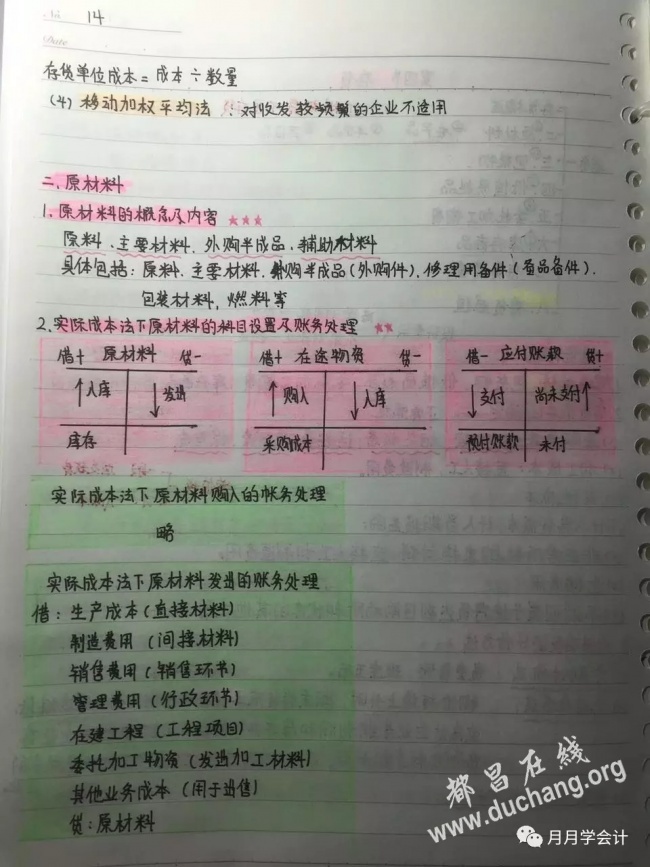 No. 14
Date
存货单位成本 = 成本 ÷ 数量
(4) 移动加权平均法 : 对收发较频繁的企业不适用
二、原材料
1. 原材料的概念及内容 ★★★
原料、主要材料、外购半成品、辅助材料
具体包括: 原料、主要材料、外购半成品(外购件)、修理用备件(备品备件)、
包装材料, 燃料等
2. 实际成本法下原材料的科目设置及账务处理 ★★
借+ 原材料 贷- 借+ 在途物资 贷- 借- 应付账款 贷+
↑入库 ↓发出 ↑购入 ↓入库 ↓支付 尚未支付↑
库存 采购成本 预付账款 未付
实际成本法下原材料购入的帐务处理
略
实际成本法下原材料发出的账务处理
借: 生产成本(直接材料)
制造费用 (间接材料)
销售费用 (销售环节)
管理费用 (行政环节)
在建工程 (工程项目)
委托加工物资 (发出加工材料)
其他业务成本 (用于出售)
贷: 原材料
都昌在线
www.duchang.org
月月学会计